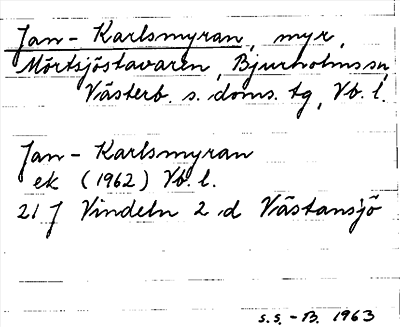 Jan-Karlsmyran, myr,
Mörtsjöstavaren, Bjurholms sn,
Västerb. s. doms. tg, Vb. l.
Jan-Karlsmyran
ek (1962) Vb. l.
21 J Vindeln 2 d Västansjö
S.S.-B. 1963